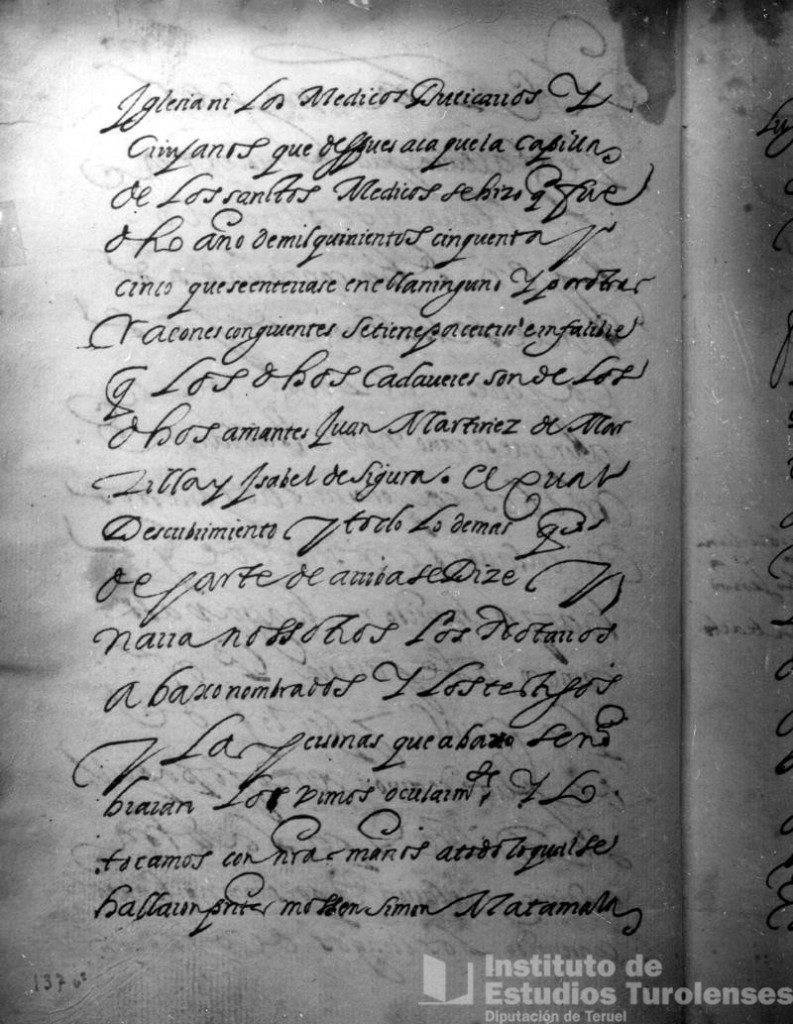 Iglesia ni Los Medicos Buticarios Y
Ciruxanos que despues aca que la capilla
de Los sanctos Medicos se hizo q fue
dho año de mil quinientos cinquenta y
cinco que se enterrase en ella ninguno Y por otras
Raçones congruentes se tiene por cierto e infalible
q Los dhos Cadaueres son de Los
dhos amantes Juan Martinez de Mar
zilla y Isabel de Sigura. El qual
Descubrimiento y todo Lo demas q
de parte de arriba se Dize Y
narra nossotros Los Notarios
abaxo nombrados Y Los testigos
y Las personas que abaxo se no
braran Los vimos ocularmte, Y Lo
tocamos con nras manos a todo lo qual se
hallaron pntes mossen Simon Matamala
137
Instituto de
Estudios Turolenses
Diputación de Teruel